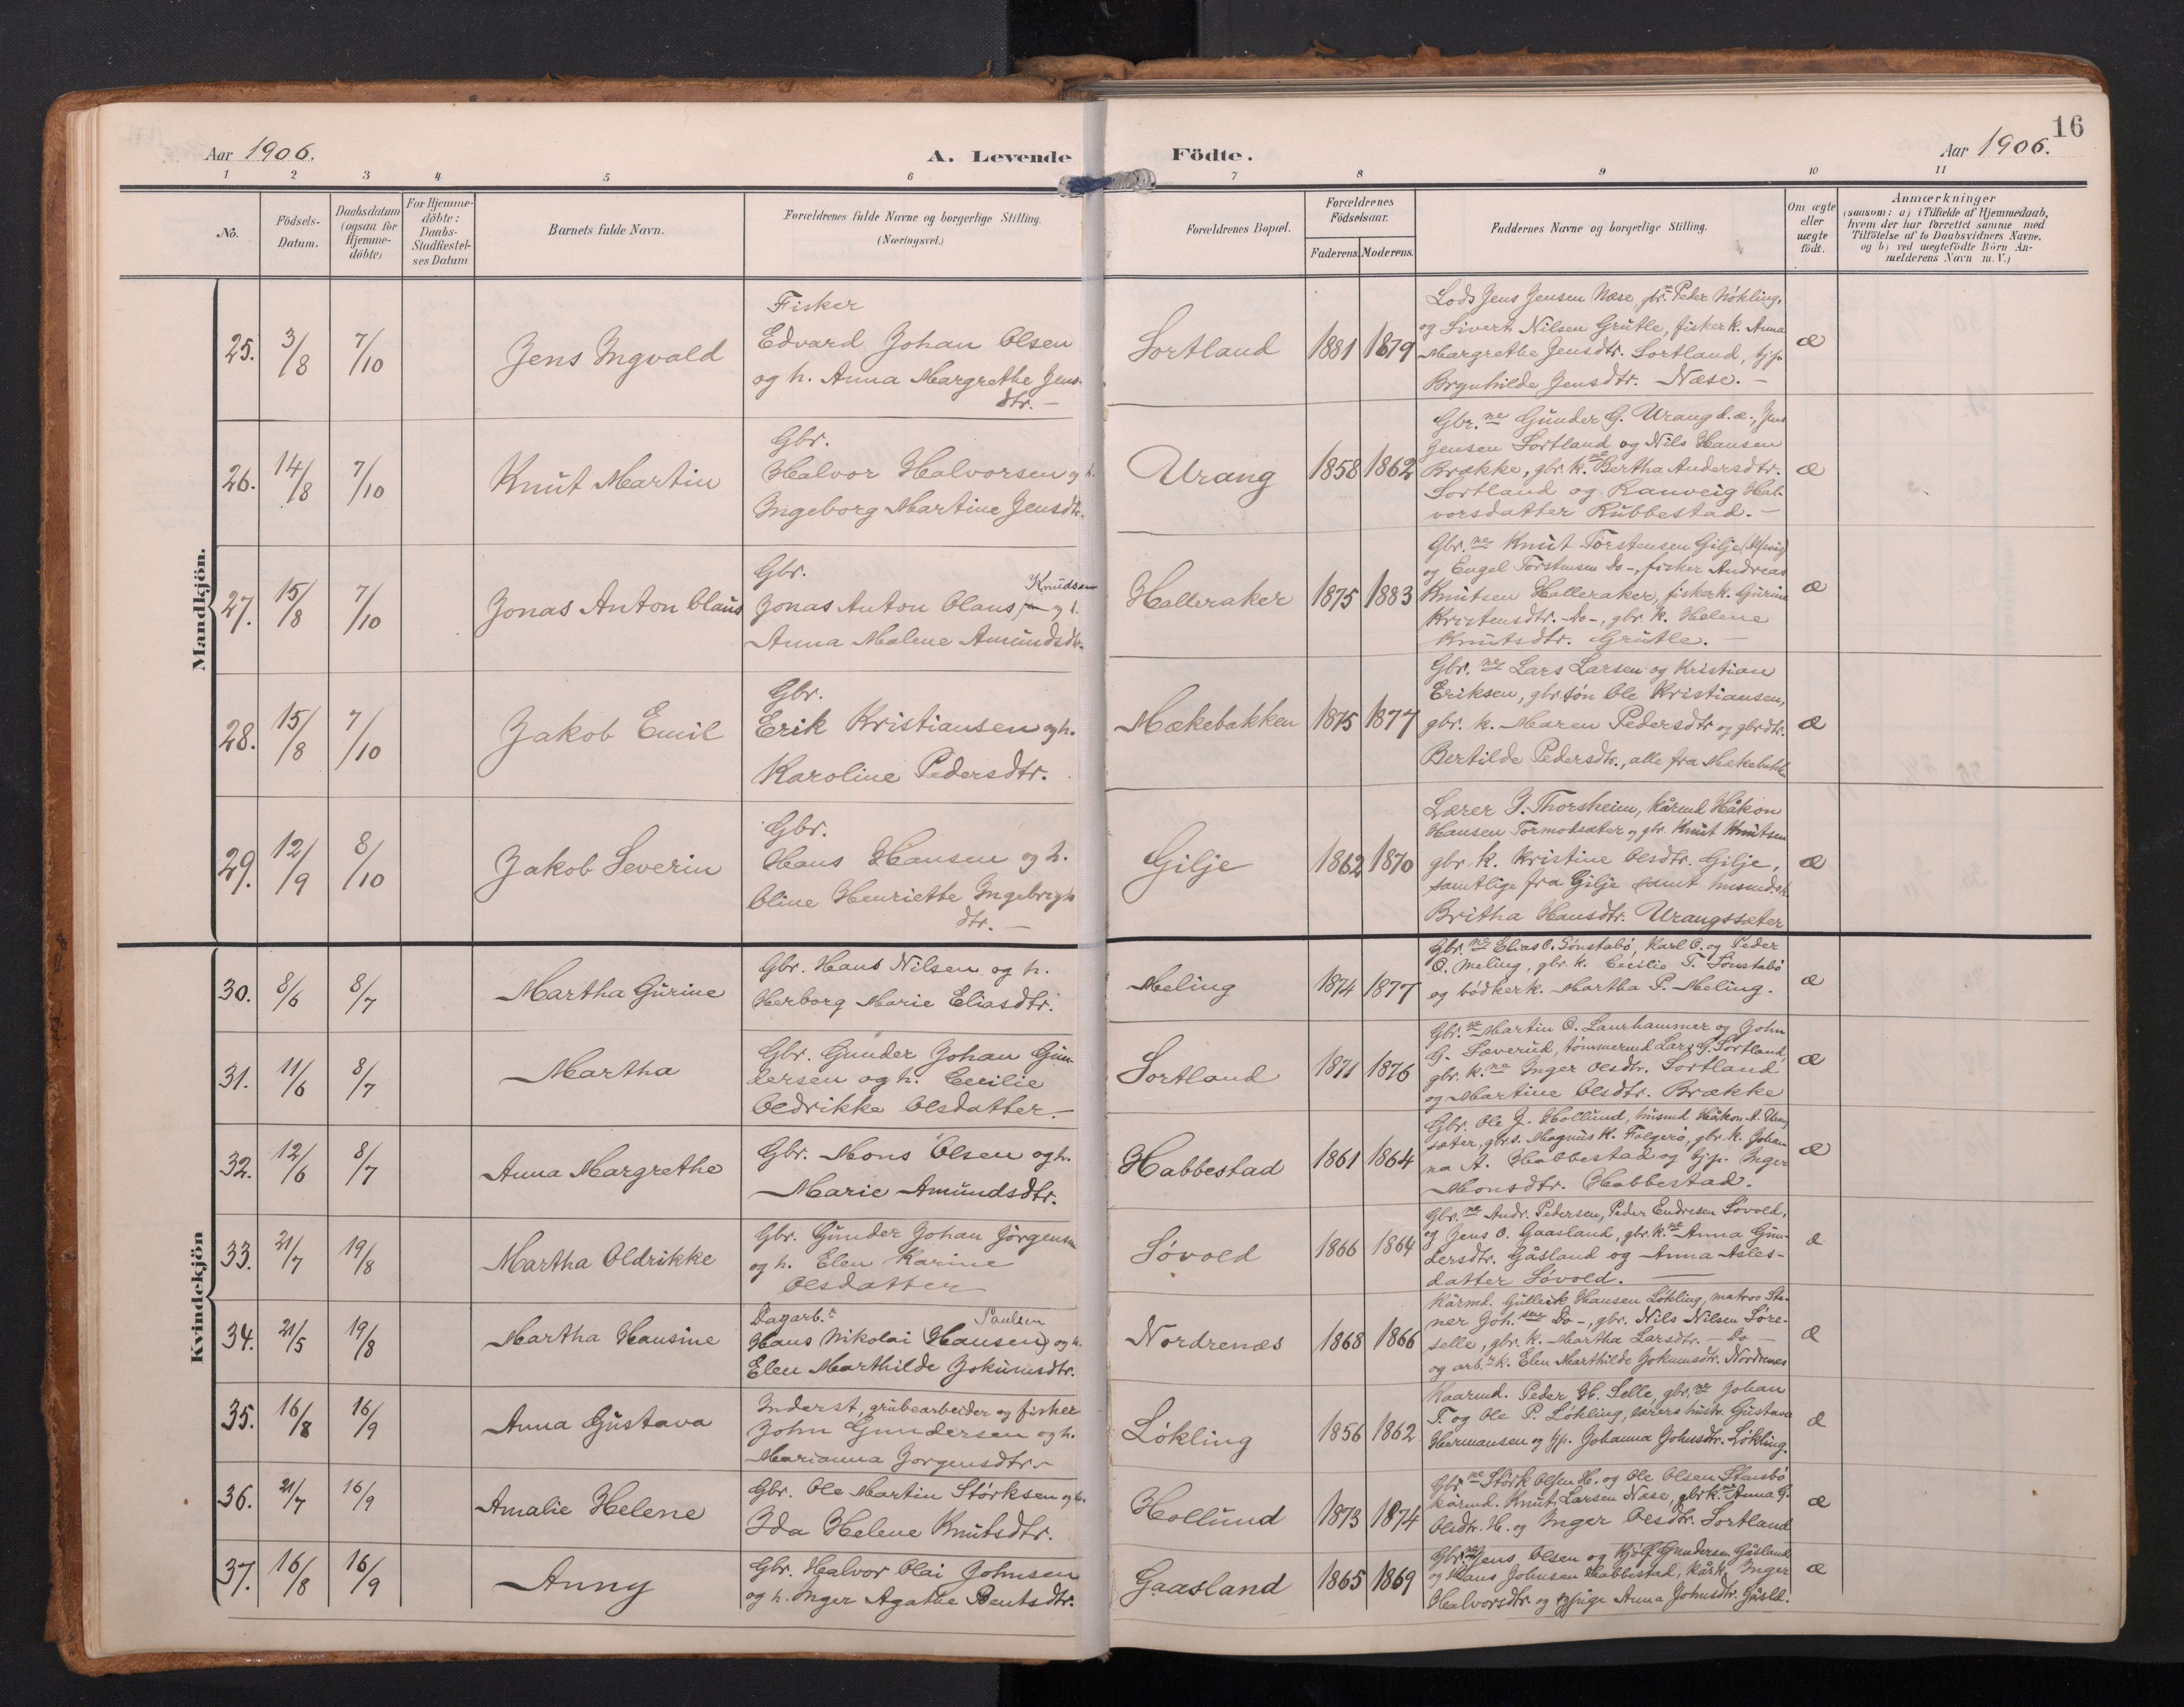 16
Aar 1906.
A. Levende Födte.
Aar 1906.
1 2 3 4 5 6 7 8 9 10 11
No.
Födsels-
Datum.
Daabsdatum
(ogsaa for
Hjemme-
döbte)
For Hjemme-
döbte:
Daabs-
Stadfæstel-
ses Datum
Barnets fulde Navn.
Forældrenes fulde Navne og borgerlige Stilling.
(Næringsvei.)
Forældrenes Bopæl.
Forældrenes
Födselsaar.
Faderens. Moderens.
Faddernes Navne og borgerlige Stilling.
Om ægte
eller
uægte
födt.
Anmærkninger
(saasom: a) i Tilfælde af Hjemmedaab,
hvem der har forrettet samme med
Tilföielse af to Daabsvidners Navne,
og b) ved uægtefödte Börn An-
melderens Navn m. V.)
Mandkjön.
25. 3/8 7/10
Jens Ingvald
Fisker
Edvard Johan Olsen
og h. Anna Margrethe Jens-
dtr. –
Sortland 1881 1879
Lods Jens Jensen Næse, gbr.ne Peder Nökling,
og Sivert Nilsen Grutle, fisker k. Anna
Margrethe Jensdtr. Sortland, tjp.
Brynhilde Jensdtr. Næse. –
æ
26. 14/8 7/10
Knut Martin
Gbr.
Halvor Halvorsen og h.
Ingeborg Martine Jensdtr.
Urang 1858 1862
Gbr.ne Gunder G. Urang d.æ., Jens
Jensen Sortland og Nils Hansen
Brække, gbr. k.ne Bertha Andersdtr.
Sortland og Ranveig Hal-
vorsdatter Rubbestad. –
æ
27. 15/8 7/10
Jonas Anton Olaus
Gbr.
Knudsen
Jonas Anton Olaus og h.
Anna Malene Amundsdtr.
Halleraker 1875 1883
Gbr.ne Knut Torstensen Gilje
og Engel Torstensen Do-, fisker Andreas
Knutsen Halleraker, fisker k. Gurine
Kristensdtr. Do-, gbr. k. Helene
Knutsdtr. Grutle. –
æ
28. 15/8 7/10
Jakob Emil
Gbr.
Erik Kristiansen og h.
Karoline Pedersdtr.
Mækebakken 1875 1877
Gbr.ne Lars Larsen og Kristian
Eriksen, gbr. sön Ole Kristiansen,
gbr. k. Maren Pedersdtr og gbr dtr.
Bertilde Pedersdtr., alle fra Mækebakken
æ
29. 12/9 8/10
Jakob Severin
Gbr.
Hans Hansen og h.
Oline Henriette Ingebrigts
dtr. –
Gilje 1862 1870
Lærer J. Thorsheim, kårmd Håkon
Hansen Tormodsæter og gbr. Knut Knutsen
gbr. k. Kristine Olsdtr. Gilje,
samtlige fra Gilje samt husmdsk.
Britha Hansdtr. Urangssæter
æ
Kvindekjön
30. 8/6 8/7
Martha Gurine
Gbr. Hans Nilsen og h.
Herborg Marie Eliasdtr.
Meling 1874 1877
Gbr.ne Elias O. Sönstabö, Karl O. og Peder
O. Meling, gbr. k. Cecilie T. Sönstabö
og bödker k. Martha P. Meling.
æ
31. 11/6 8/7
Martha
Gbr. Gunder Johan Gun-
dersen og h. Cecilie
Oldrikke Olsdatter. –
Sortland 1871 1876
Gbr.ne Martin O. Laurhammer og John
G. Sæverud, tömmermd Lars G. Sortland,
gbr. k.ne Inger Olsdtr. Sortland
og Martine Olsdtr. Brække
æ
32. 12/6 8/7
Anna Margrethe
Gbr. Mons Olsen og h.
Marie Amundsdtr.
Habbestad 1861 1864
Gbr. Ole J. Hollund, husmd Håkon A. Urang
sæter, gbr. s. Magnus K. Folgerö, gbr. k. Johan
na A. Habbestad og tjp. Inger
Monsdtr. Habbestad.
æ
33. 21/7 19/8
Martha Oldrikke
Gbr. Gunder Johan Jörgensen
og h. Elen Karine
Olsdatter
Sövold 1866 1864
Gbr.ne Andr. Pedersen, Peder Endresen Sövold,
og Jens O. Gaasland, gbr. k.ne Anna Gun-
dersdtr. Gåsland og Anna Asles-
datter Sövold. –
æ
34. 21/5 19/8
Martha Hansine
Dagarb.r Paulsen
Hans Nikolai (Hansen) og h.
Elen Marthilde Jokumsdtr.
Nordrenæs 1868 1866
Kårmd. Gulleik Hansen Lökling, matros Ste-
ner Joh. Do-, gbr. Nils Nilsen Söre-
selle, gbr. k. Martha Larsdtr. – Do –
og arb.r k. Elen Marthilde Jokumsdtr. Nordrenæs
æ
35. 16/8 16/9
Anna Gustava
Inderst, grubearbeider og fisker
John Gundersen og h.
Marianna Jorgensdtr.
Lökling 1856 1862
Kaarmd. Peder H. Selle, gbr.ne Johan
T. og Ole P. Lökling, lærers hustr. Gustava
Hermansen og tjp. Johanna Johnsdtr. Lökling.
æ
36. 21/7 16/9
Amalie Helene
Gbr. Ole Martin Störksen og h.
Ida Helene Knutsdtr.
Hollund 1873 1874
Gbr.ne Störk Olsen H. og Ole Olsen Stensbö
kårmd. Knut Larsen Næse, gbr k.ne Anna G.
Olsdtr. H. og Inger Olsdtr. Sortland
æ
37. 16/8 16/9
Anny
Gbr. Halvor Olai Johnsen
og h. Inger Agathe Bentsdtr.
Gaasland 1865 1869
Gbr.ne Jens Olsen og Kjölf Gundersen Gåsland
og Hans Johnsen Habbestad, kår k. Inger
Halvorsdtr. og pige Anna Johnsdtr. Gåsld.
æ